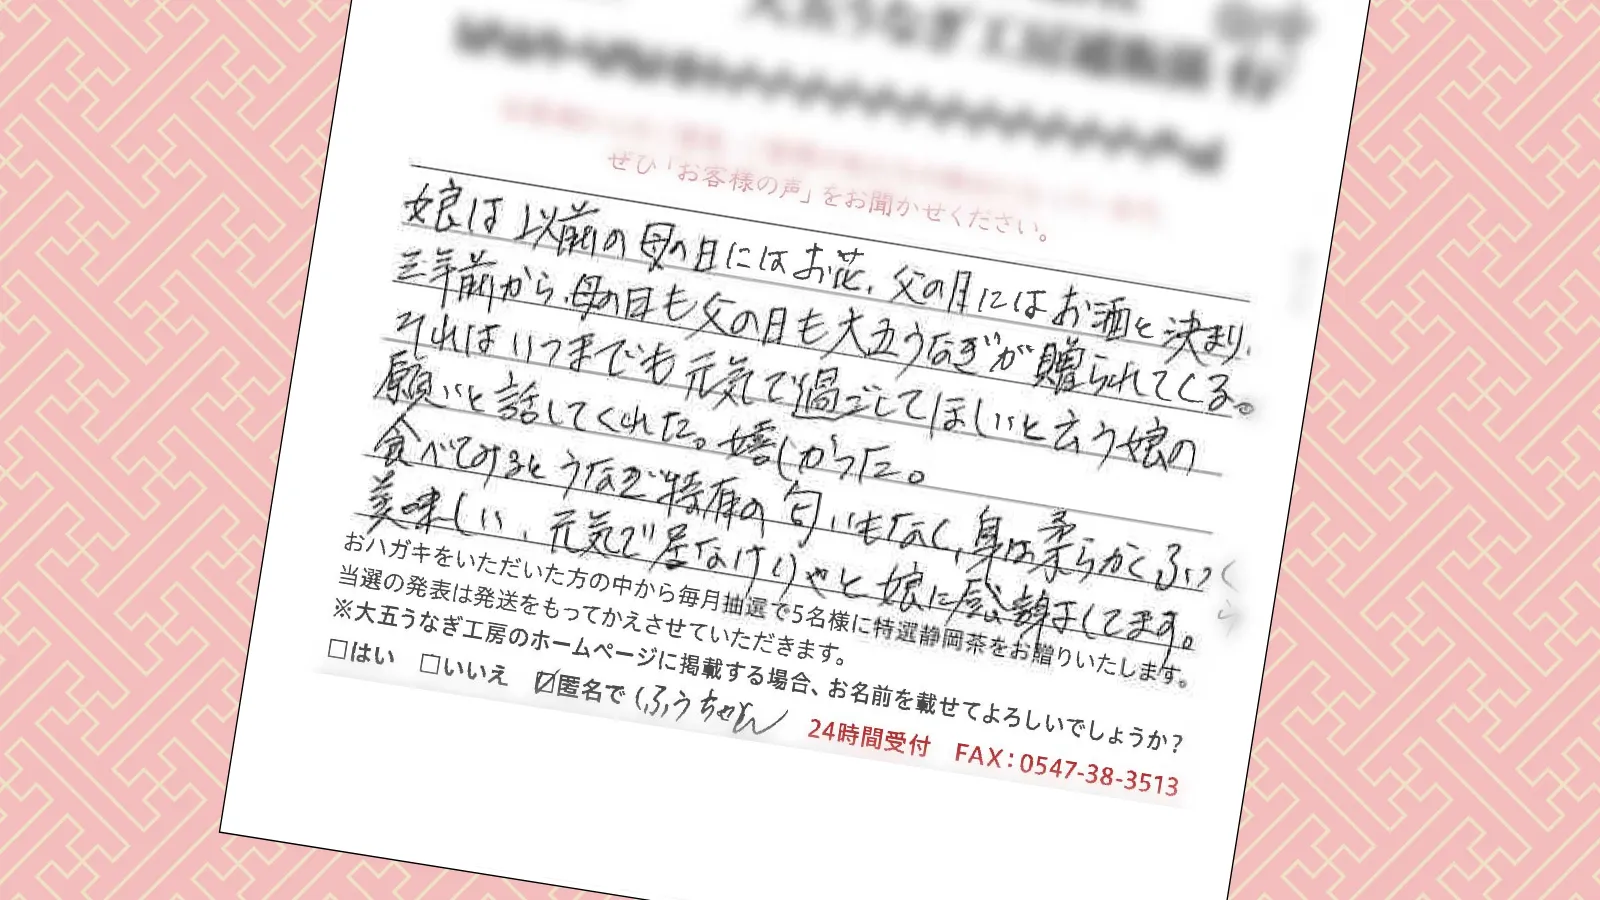 大五うなぎ工房通販係 行
ぜひ「お客様の声」をお聞かせください。
娘は以前の母の日にはお花、父の日にはお酒と決まり、
三年前から、母の日も父の日も大五うなぎが贈られてくる。
それはいつまでも元気で過ごしてほしいと云う娘の
願いと話してくれた。嬉しかった。
食べてみるとうなぎ特有の匂いもなく、身は柔らかくふっくら
美味しい、元気で居なけりゃと娘に感謝してます。
おハガキをいただいた方の中から毎月抽選で5名様に特選静岡茶をお贈りいたします。
当選の発表は発送をもってかえさせていただきます。
※大五うなぎ工房のホームページに掲載する場合、お名前を載せてよろしいでしょうか?
□はい □いいえ ☑匿名で(ふうちゃん)
24時間受付 FAX:0547-38-3513